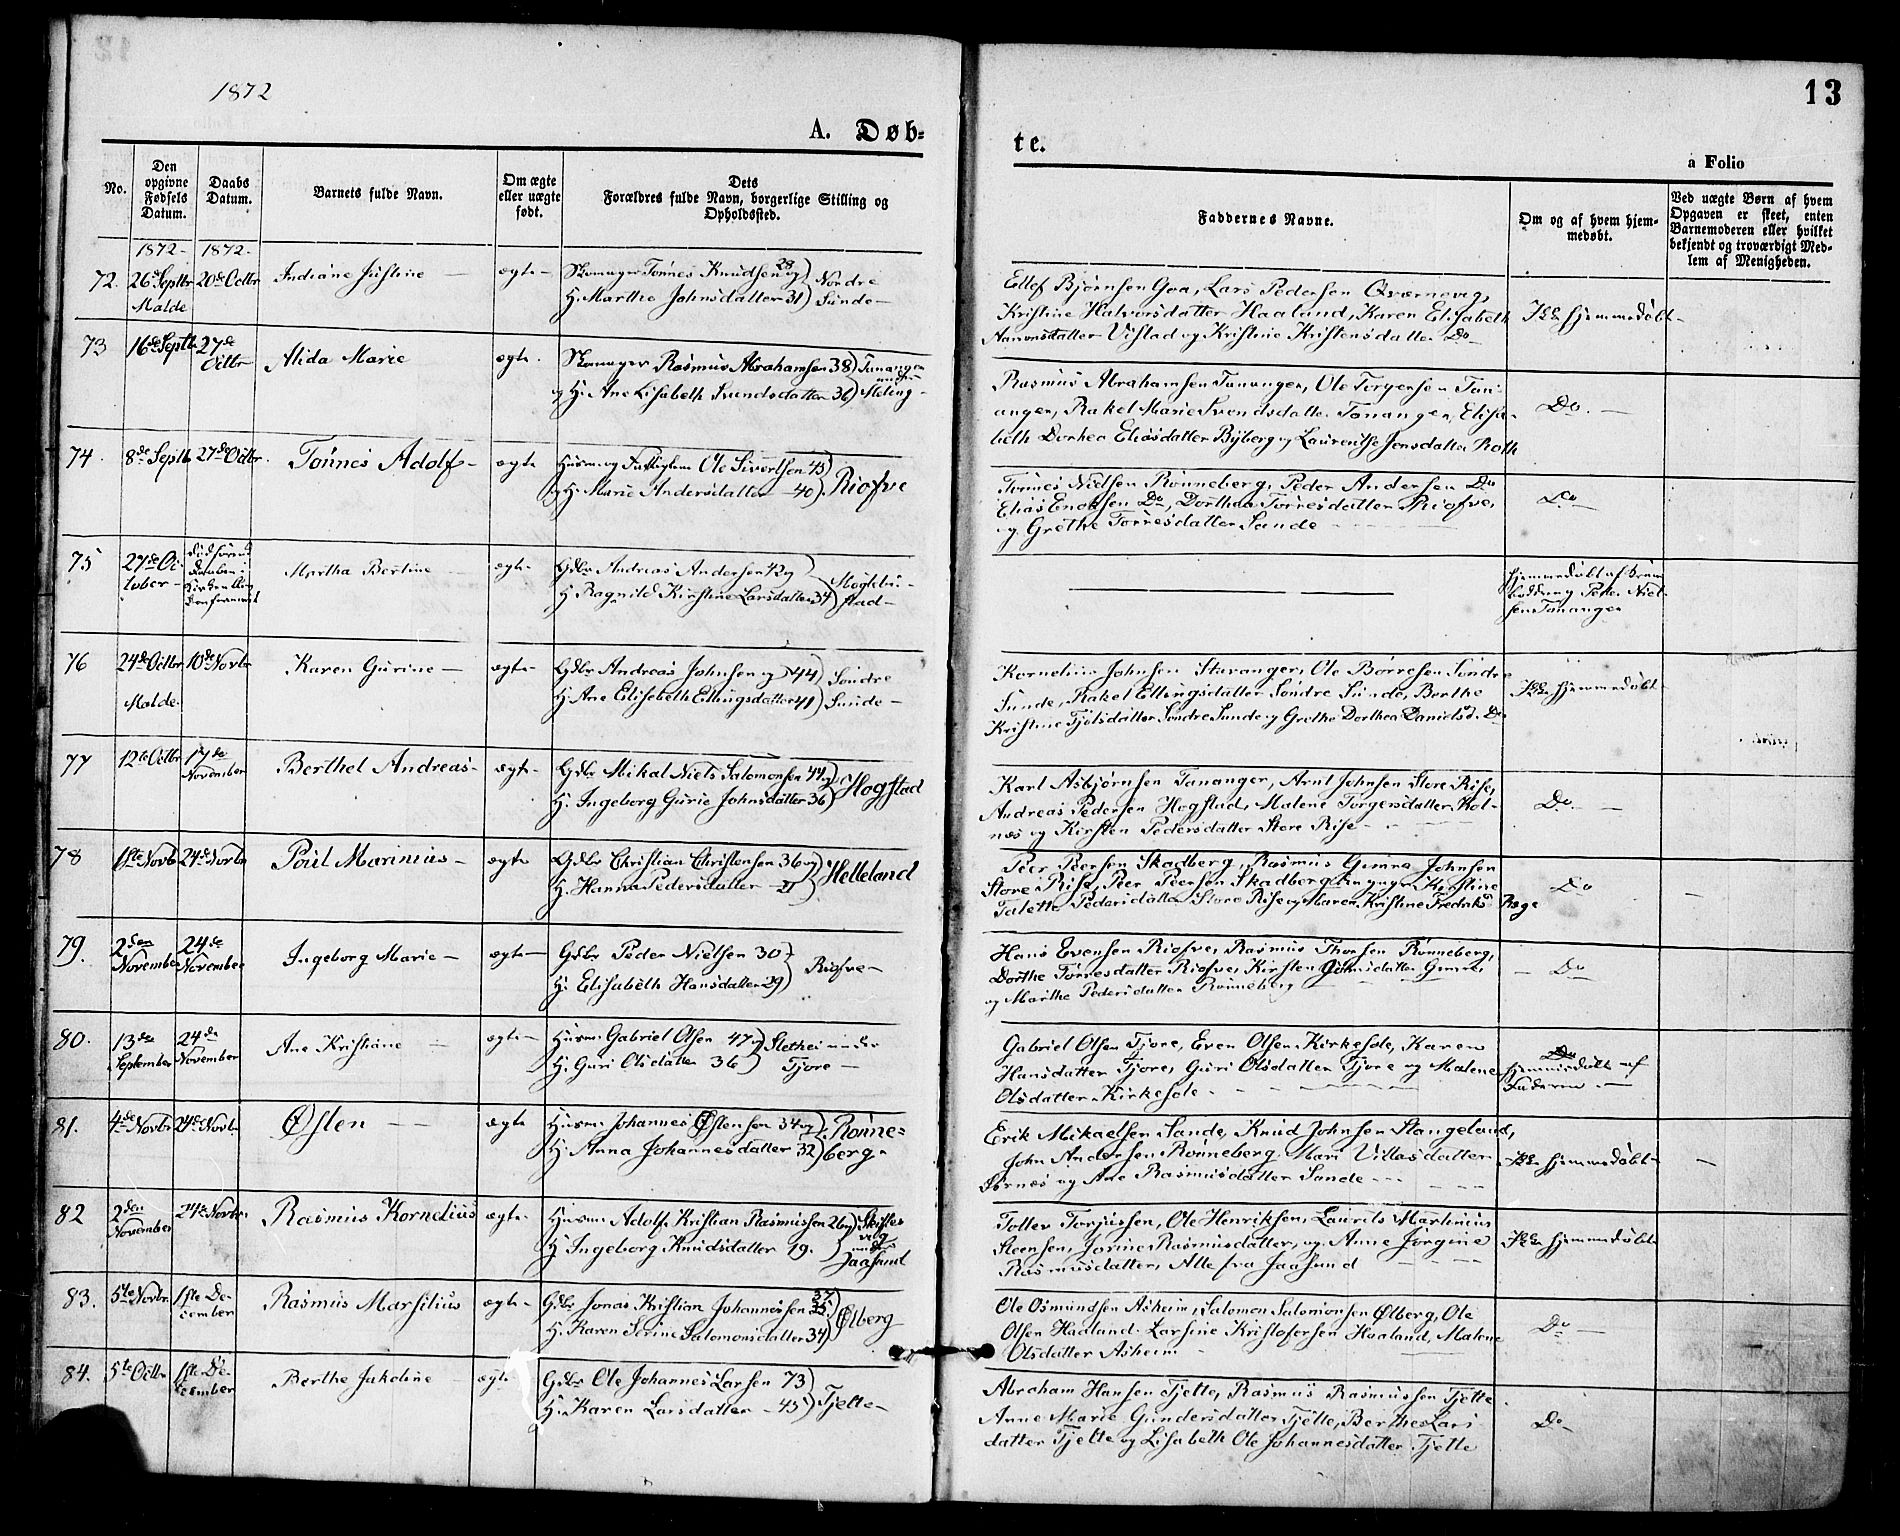 1872
13
A. Døb-
te.
a Folio
No.
Den opgivne Fødsels Datum.
Daabs Datum.
Barnets fulde Navn.
Om ægte eller uægte født.
Dets Forældres fulde Navn, borgerlige Stilling og Opholdssted.
Faddernes Navne.
Om og af hvem hjem-
medøbt.
Ved uægte Børn af hvem
Opgaven er skeet, enten
Barnemoderen eller hvilket
bekjendt og troværdigt Med-
lem af Menigheden.
1872- 1872-
72. 26de Septbr 20de Octbr Indiane Justine – ægte – Skomager Tønnes Knudsen 28 og Nordre
Malde H. Marthe Johnsdatter 31 Sunde –
Ellef Bjørnsen Goa, Lars Pedersen Qværnevig,
Kristine Halvorsdatter Haaland, Karen Elisabeth Ikke hjemmedøbt –
Aanonsdatter Vistad og Kristine Kristensdatter Do
73 16de Septbr 27de Octbr Alida Marie ægte. Skomager Rasmus Abrahamsen 38 Tananger under
og H. Ane Lisabeth Svendsdatter 36 Meling –
Rasmus Abrahamsen Tananger, Ole Torgersen Tan-
anger, Rakel Marie Svendsdatter Tananger, Elisa- Do. –
beth Dorhea Eliasdatter Byberg og Laurentse Jonsdatter Roth
74. 8de Septb 27de Octbr. Tønnes Adolf – ægte Husm. og Ole Sivertsen 45
H. Marie Andersdatter – 40 Riosve
Tønnes Nielsen Rønneberg, Peder Andersen Do
Elias Enoksen Do, Dorthea Tørresdatter Riosve, Do –
og Grethe Tørresdatter Sande
75 27de Oc-
tober – Martha Bertine – ægte – Gdbr Andreas Andersen 42 og Hogstad –
H. Ragnild Kirstine Larsdatter 34
Hjemmedøbt af
Peder Niel-
sen Tananger
76 24de Octbr 10de Novbr Karen Gurine – ægte – Gdbr Andreas Johnsen og 44 Søndre
Malde. H. Ane Elisebeth Ellingsdatter 41 Sunde –
Kornelius Johnsen Stavanger, Ole Børresen Søndre
Sunde, Rakel Ellingsdatter Søndre Sunde, Berthe Ikke hjemmedøbt –
Kristine Tjølsdatter Søndre Sunde og Grethe Dorthea Danielsd. Do
77 12te Octbr 17de November Berthel Andreas – ægte – Gdbr Mikal Niels Salomonsen 44 og Hogstad
H. Ingeborg Gurie Johnsdatter 36
Karl Asbjørnsen Tananger, Arnt Johnsen Store Risе,
Andreas Pedersen Hogstad, Malene Torgersdatter Kol- Do –
næs og Kirsten Pedersdatter Store Rise –
78 1ste Novb 24de Novbr Poul Marinius – ægte Gdbr Christian Christensen 36 og Helleland
H. Hanna Pedersdatter – 21
Peer Peersen Skadberg, Rasmus Gimre Johnsen
Store Rise, Peer Peersen Skadberg Kirstine Do –
Talette Pedersdatter Store Rise og Maren Kristine Fredriks Ræge
79. 2den November 24de November Ingeborg Marie – ægte – Gdbr Peder Nielsen 30 Riosve –
H. Elisabeth Hansdatter 29
Hans Evensen Riosve, Rasmus Thorsen Rønneberg,
Dorthe Tørresdatter Riosve, Kirsten Johnsdatter Gimre, – Do
og Marthe Pedersdatter Rønneberg –
80. 13de September 24de November Ane Kristiane – ægte – Husm. Gabriel Olsen 47 Slethei under
H. Guri Olsdatter 36 Tjore –
Gabriel Olsen Tjore, Even Olsen Kirkesole, Karen Do
Hansdatter Tjore, Guri Olsdatter Tjore og Malene hjemmedøbt af
Olsdatter Kirkesole – Faderen –
81. 4de Novbr 24de Novb. Østen – – ægte Husm. Johannes Østensen 34 og Rønne-
H. Anna Johannesdatter 32 berg –
Erik Mikaelsen Sande, Knud Johnsen Stangeland,
John Andersen Rønneberg. Mari Villasdatter Ikke hjemmedøbt –
Sørnes og Ane Rasmusdatter Sande –
82 2den November 24de Novbr. Rasmus Kornelius ægte – Husm. Adolf Kristian Rasmussen 26 og
H. Ingeborg Knudsdatter 19. under Jaasund
Tolles Torjussen, Ole Henriksen, Laurits Martinius
Steensen, Jorine Rasmusdatter, og Anne Jorgine Ikke hjemmedøbt
Rasmusdatter, Alle fra Jaasund –
83. 5te Novbr. 1ste De-
cember Rasmus Marselius ægte – Gdbr Jonas Kristian Johannesen 37 Ølberg
H. Karen Serine Salomonsdatter 34
Ole Osmundsen Asheim, Salomon Salomonsen Ølberg, Ole
Olsen Haaland. Larsine Kristofersen Haaland, Malene Do –
Olsdatter Asheim –
84. 5te Octbr 1ste De-
cember Berthe Jakobine – ægte Gdbr Ole Johannes Larsen 73 Tjelte –
H. Karen Larsdatter – 45
Abraham Hansen Tjelte, Rasmus Rasmussen Tjelte.
Anne Marie Gundersdatter Tjelte, Berthe Lars- Do –
datter Tjelte og Lisabeth Ole Johannesdatter Tjelte